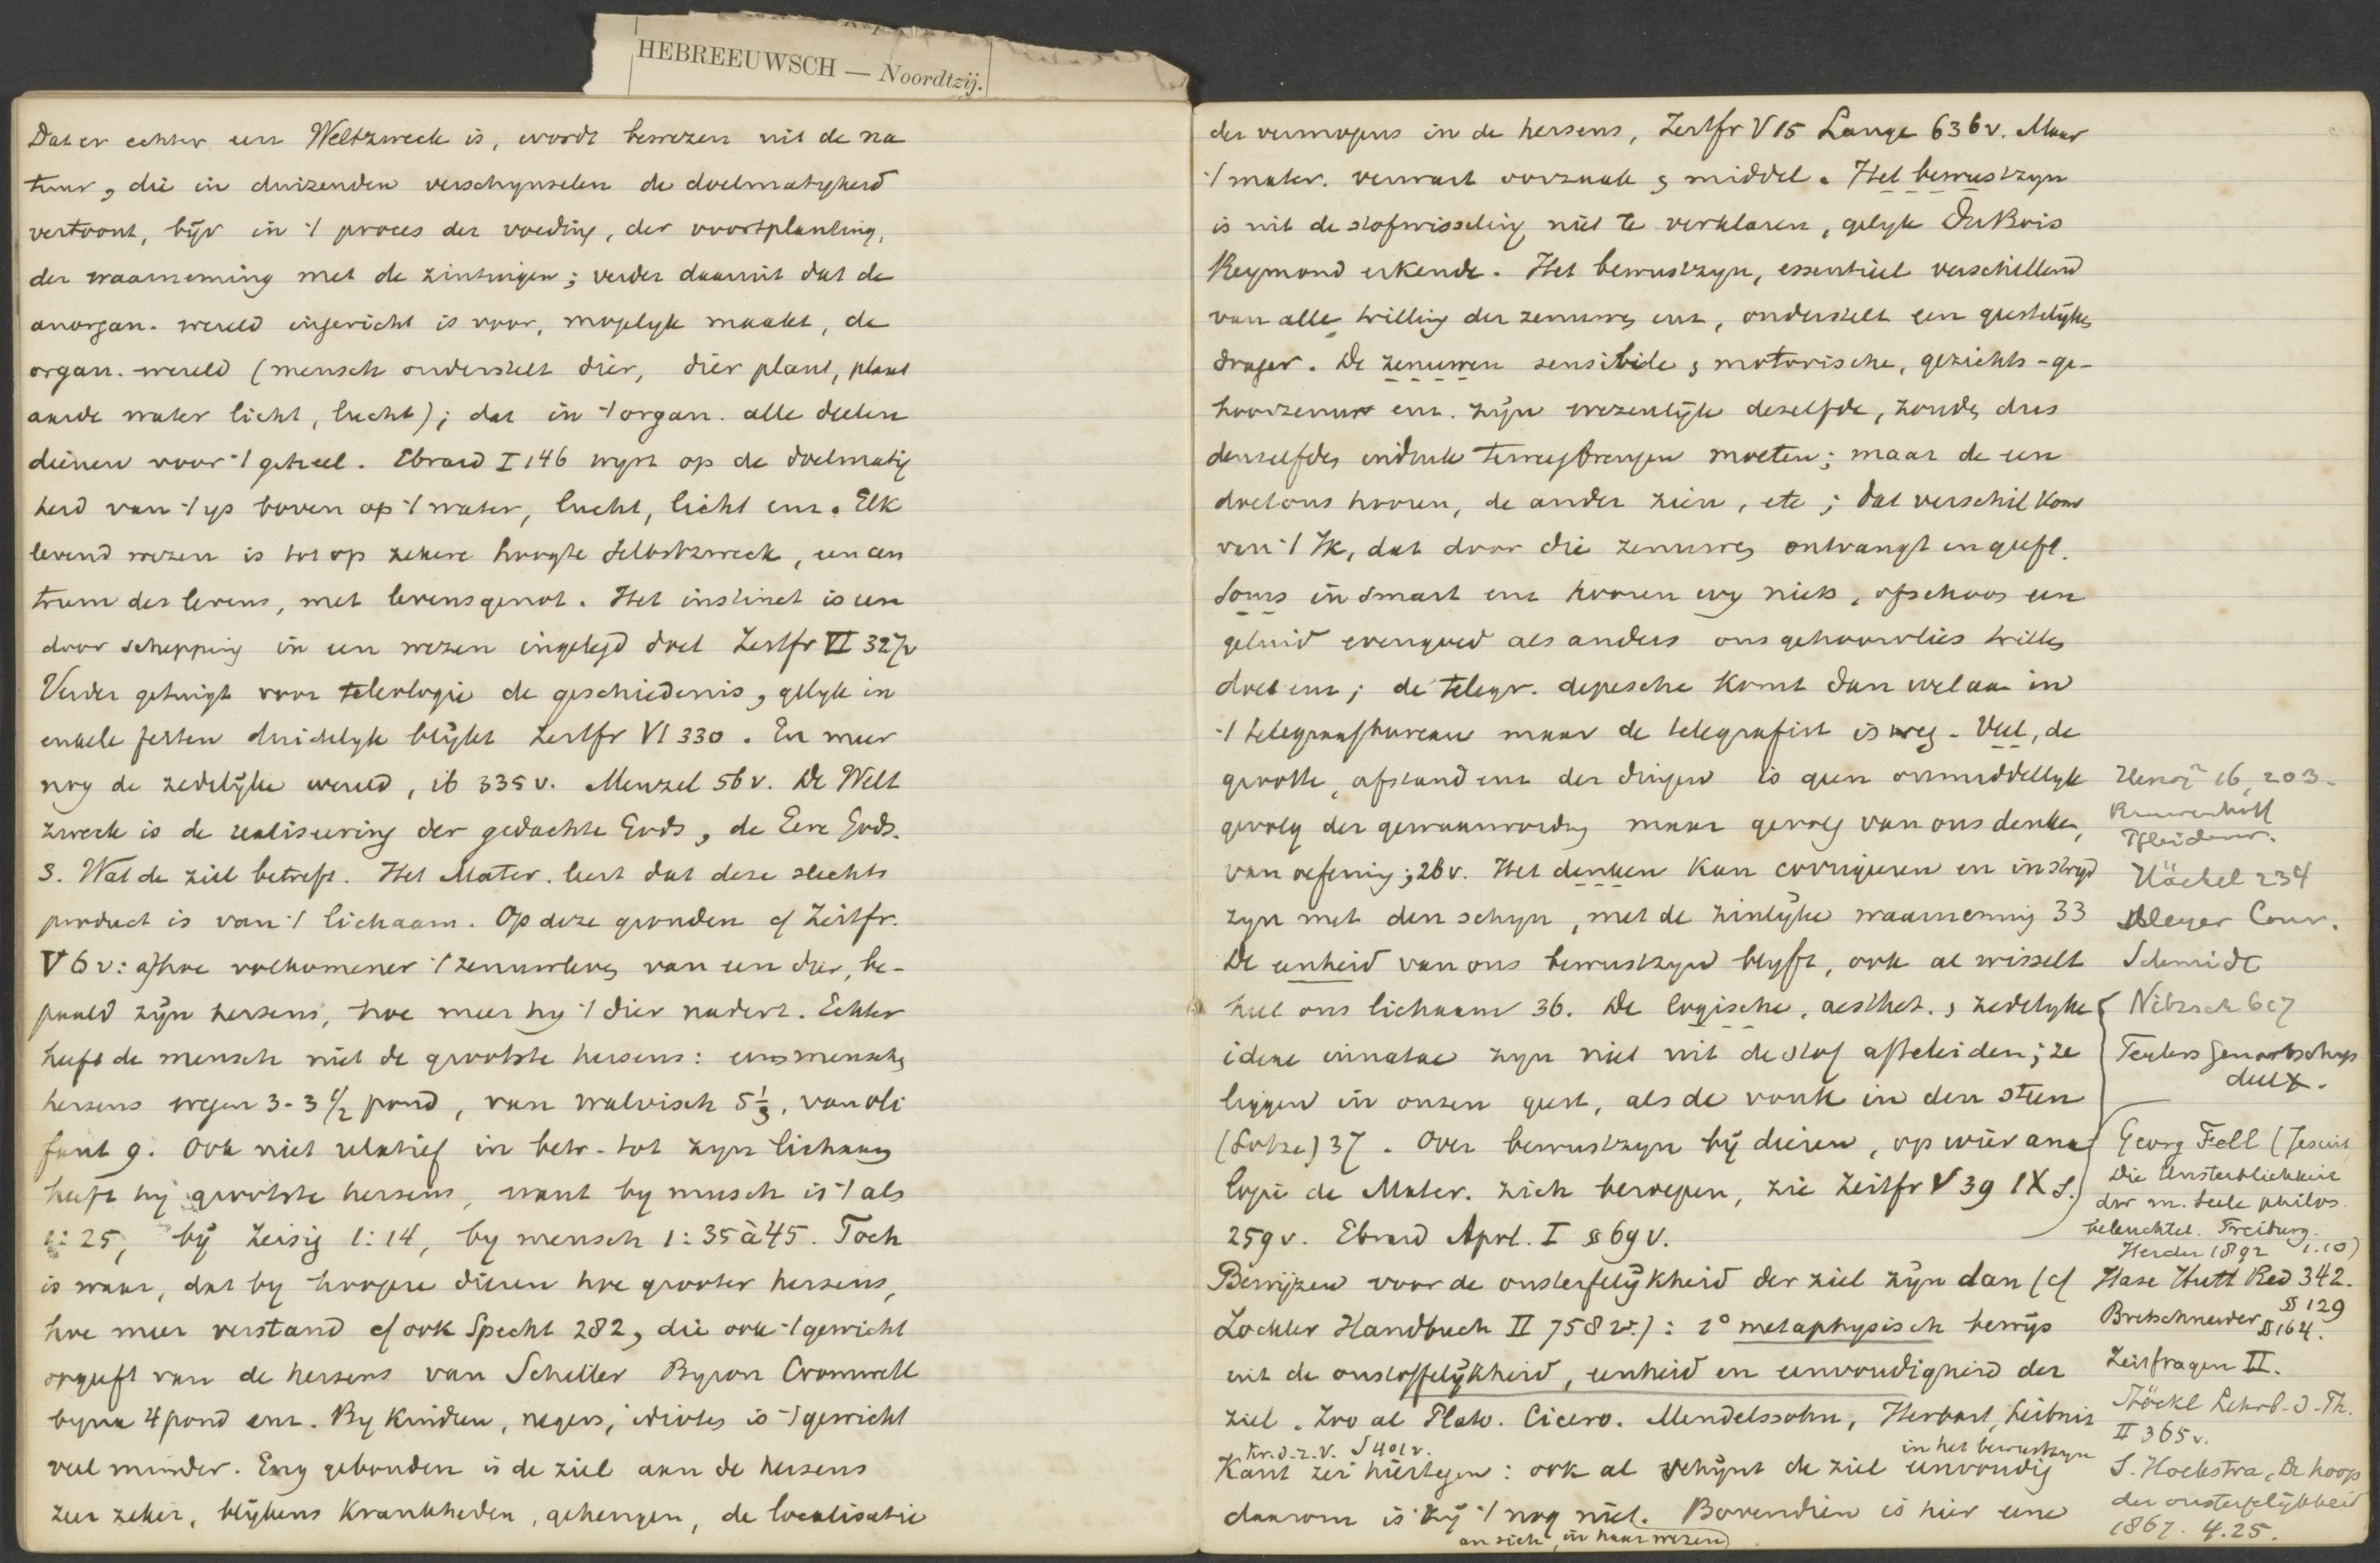 HEBREEUWSCH — Noordtzij.
Dat er echter een Weltzweck is, wordt bewezen uit de na
tuur, die in duizenden verschynselen de doelmatigheid
vertoont, bijv in 't proces der voeding, der voortplanting,
der waarneming met de zintuigen; verder daaruit dat de
anorgan. wereld ingericht is voor, mogelyk maakt, de
organ. wereld (mensch onderstelt dier, dier plant, plant
aarde water licht, lucht); dat in 't organ. alle deelen
dienen voor 't geheel. Ebrard I 146 wyst op de doelmatig
heid van 't ys boven op 't water, lucht, licht enz. Elk
levend wezen is tot op zekere hoogte Selbstzweck, een cen
trum des levens, met levensgenot. Het instinct is een
door schepping in een wezen ingelegd doel Zeitfr VI 327v
Verder getuigt voor teleologie de geschiedenis, gelyk in
enkele feiten duidelyk blijkt Zeitfr VI 330. En meer
nog de zedelijke wereld, ib 335 v. Menzel 56 v. De Welt
zweck is de realiseering der gedachte Gods, de Eere Gods.
3. Wat de ziel betreft. Het Mater. leert dat deze slechts
product is van 't lichaam. Op deze gronden cf Zeitfr.
V 6 v: a/ hoe volkomener 't zenuwleven van een dier, be-
paald zijn hersens, hoe meer hy 't dier nadert. Echter
heeft de mensch niet de grootste hersens: eens menschen
hersens wegen 3-3 1/2 pond, van walvisch 5 1/3, van oli
fant 9. Ook niet relatief in betr. tot zyn lichaam
heeft hij grootste hersens, want by musch is 't als
1:25, bij Zeisig 1:14, by mensch 1:35 à 45. Toch
is waar, dat by hoogere dieren hoe grooter hersens,
hoe meer verstand cf ook Specht 282, die ook 't gewicht
opgeeft van de hersens van Schiller Byron Cromwell
byna 4 pond enz. By kinderen, negers, idioten is 't gewicht
veel minder. Eng gebonden is de ziel aan de hersens
zeer zeker, blijkens krankheden, geheugen, de localisatie
der vermogens in de hersens, Zeitfr V 15 Lange 636 v. Maar
't mater. verwart oorzaak & middel. Het bewustzyn
is uit de stofwisseling niet te verklaren, gelyk DuBois
Reymond erkende. Het bewustzyn, essentieel verschillend
van alle trilling der zenuwen enz, onderstelt een geestelijken
drager. De zenuwen sensibele & motorische, gezichts- ge-
hoorzenuw enz. zijn wezenlijk dezelfde, zouden dus
denzelfden indruk teweegbrengen moeten; maar de een
doet ons hooren, de ander zien, etc; dat verschil komt
van 't Ik, dat door die zenuwen ontvangt en geeft.
Soms in smart enz hooren wy niets, ofschoon een
geluid evengoed als anders ons gehoorvlies trillen
doet enz; de telegr. depesche komt dan wel aan in
't telegraafbureau maar de telegrafist is weg. Veel, de
grootte, afstand enz der dingen is geen onmiddellyk
gevolg der gewaarwording maar gevolg van ons denken,
van oefening; 26 v. Het denken kan corrigeeren en in stryd
zyn met den schyn, met de zinlijke waarneming 33
De eenheid van ons bewustzyn blyft, ook al wisselt
heel ons lichaam 36. De logische, aesthet. & zedelyke
ideae innatae zyn niet uit de stof afteleiden; ze
liggen in onzen geest, als de vonk in den steen
(Lotze) 37. Over bewustzyn bij dieren, op wier ana
logie de Mater. zich beroepen, zie Zeitfr V 39 IX S.
259 v. Ebrard Apol. I § 69 v.
Bewijzen voor de onsterfelijkheid der ziel zijn dan (cf
Zöckler Handbuch II 758 v.): 1° metaphysisch bewijs
uit de onstoffelijkheid, eenheid en eenvoudigheid der
ziel. Zoo al Plato. Cicero. Mendelssohn, Herbart, Leibniz
Kr.d.r.V. S 401 v.
in het bewustzyn
Kant zei hiertegen: ook al schijnt de ziel eenvoudig
daarom is zij 't nog niet. Bovendien is hier eene
an sich, in haar wezen
16, 203.
Rauwenhoff
Pfleiderer.
Häckel 234
Meyer Conv.
Schmidt
Nitzsch 607
Teylers Genootschap
deel X.
Georg Fell (Jesuit
Die Unsterblichkeit
der m. Seele philos.
beleuchtet. Freiburg.
Herder 1892 1.10)
Hase Hutt Red 342.
Bretschneider §§ 129
§ 164.
Zeitfragen II.
Stöckl Lehrb. d. Th.
II 365 v.
S. Hoekstra, De hoop
der onsterfelijkheid
1867. 4.25.